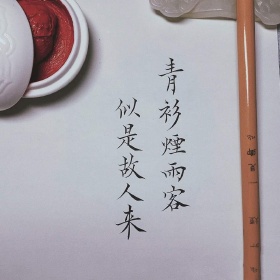 青衫煙雨客
似是故人来